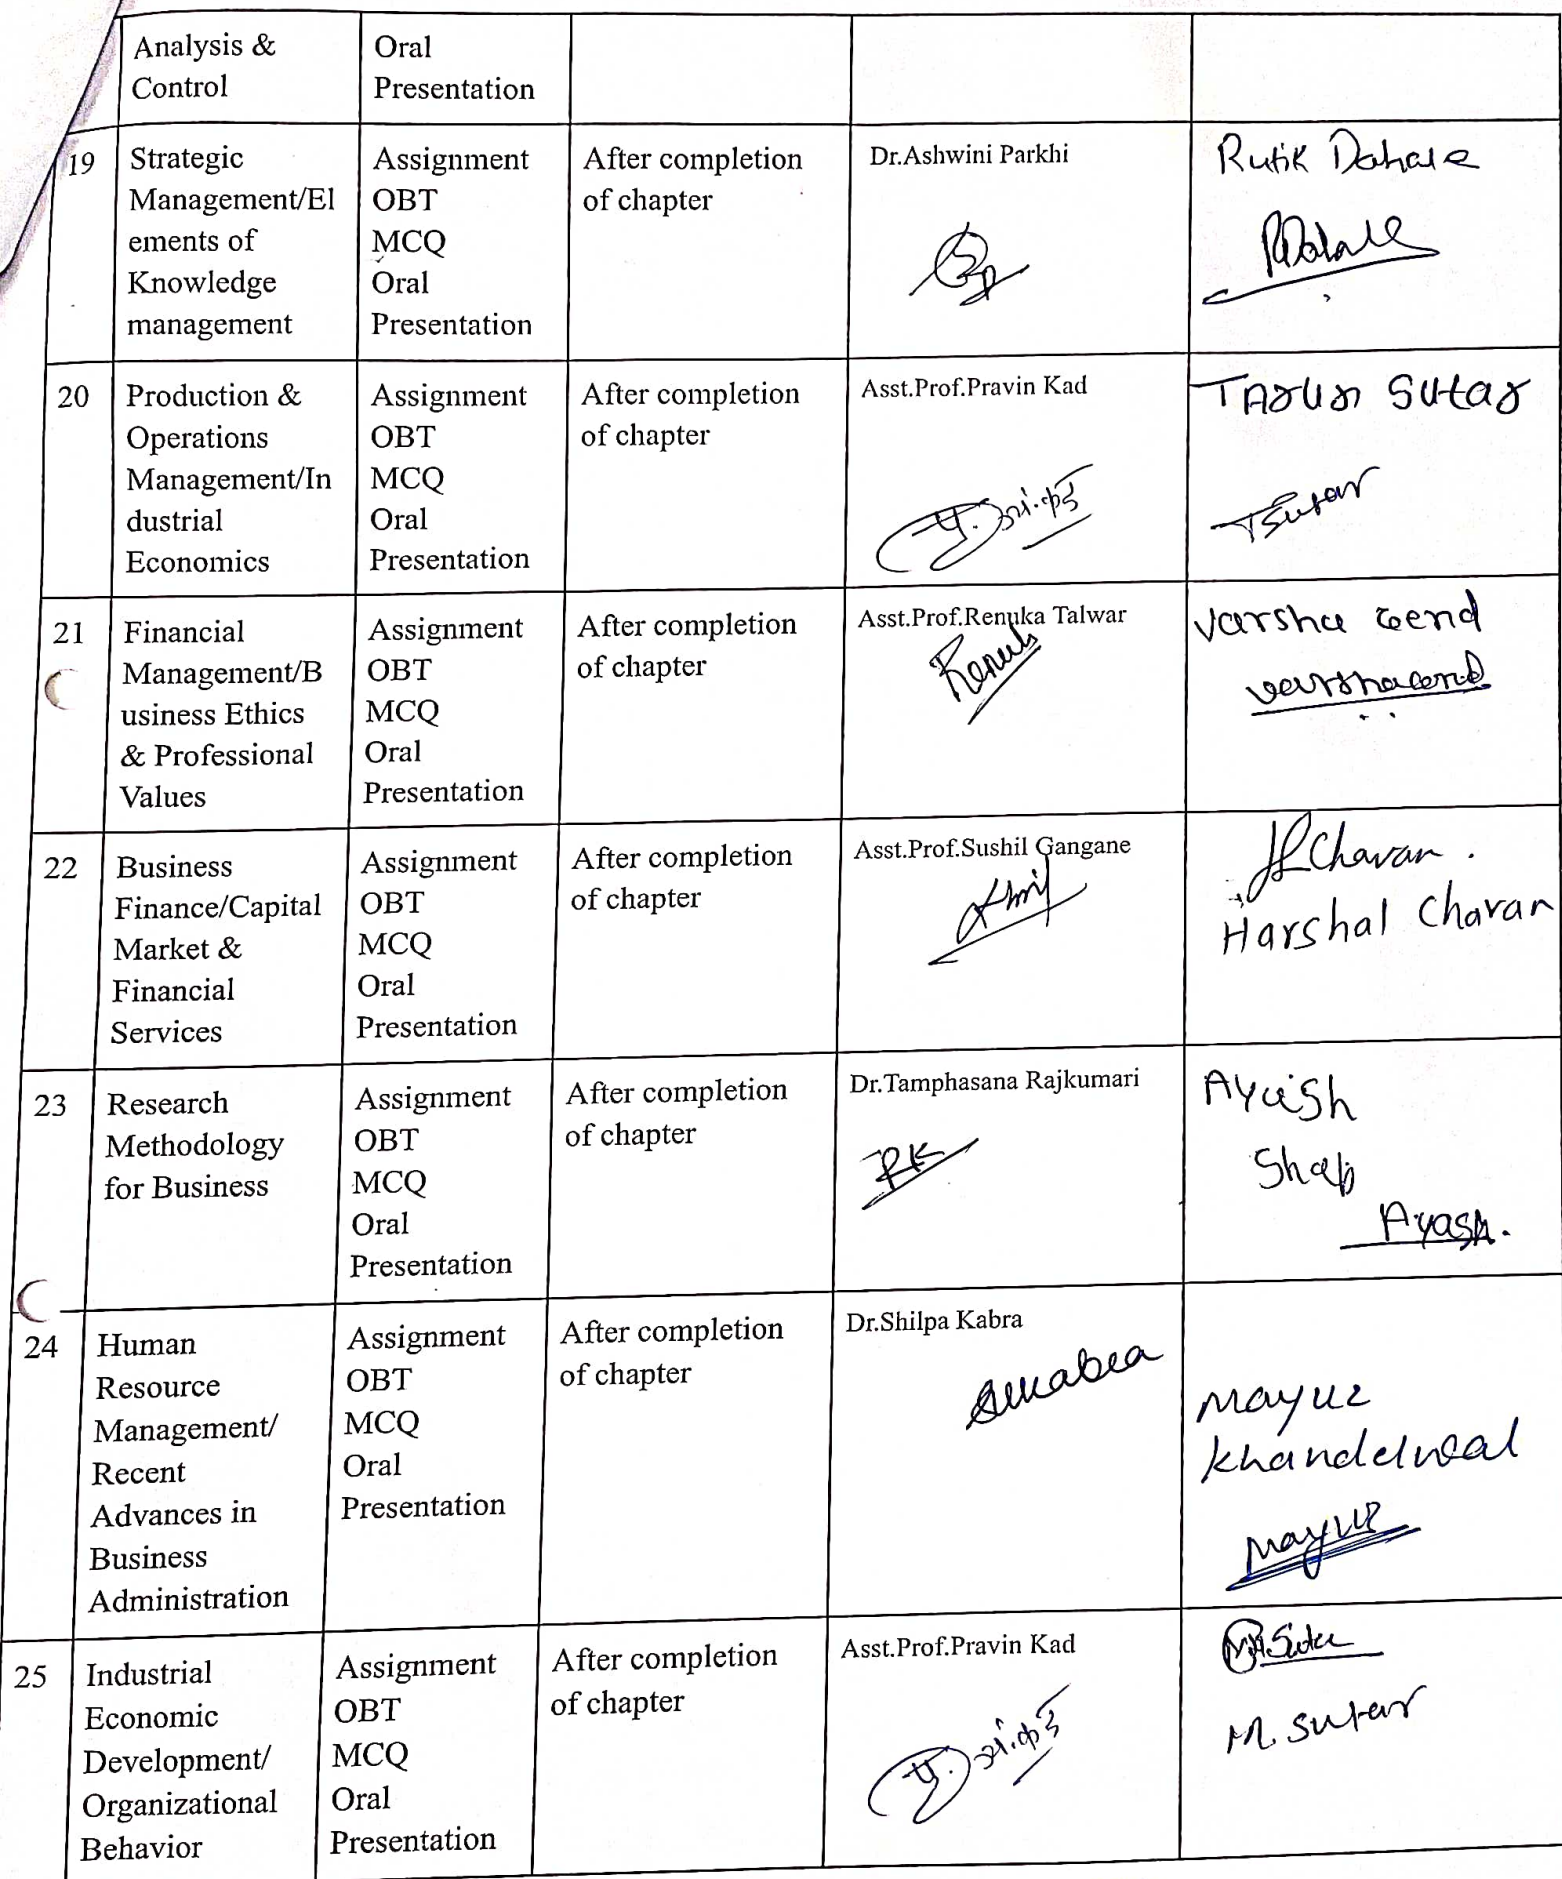 Analysis &
Control
Oral
Presentation
19
Strategic
Management/El
ements of
Knowledge
management
Assignment
OBT
MCQ
Oral
Presentation
After completion
of chapter
Dr.Ashwini Parkhi
Rutik Dahale
20
Production &
Operations
Management/In
dustrial
Economics
Assignment
OBT
MCQ
Oral
Presentation
After completion
of chapter
Asst.Prof.Pravin Kad
प्र. अं. कड
Tarun Sutar
TSutar
21
Financial
Management/B
usiness Ethics
& Professional
Values
Assignment
OBT
MCQ
Oral
Presentation
After completion
of chapter
Asst.Prof.Renuka Talwar
Renuka
Varsha Gend
22
Business
Finance/Capital
Market &
Financial
Services
Assignment
OBT
MCQ
Oral
Presentation
After completion
of chapter
Asst.Prof.Sushil Gangane
Chavan.
Harshal Chavan
23
Research
Methodology
for Business
Assignment
OBT
MCQ
Oral
Presentation
After completion
of chapter
Dr.Tamphasana Rajkumari
RK
Ayush
Ayash.
24
Human
Resource
Management/
Recent
Advances in
Business
Administration
Assignment
OBT
MCQ
Oral
Presentation
After completion
of chapter
Dr.Shilpa Kabra
Skabra
Mayur
Khandelwal
Mayur
25
Industrial
Economic
Development/
Organizational
Behavior
Assignment
OBT
MCQ
Oral
Presentation
After completion
of chapter
Asst.Prof.Pravin Kad
प्र. अं. कड
M. Sutar